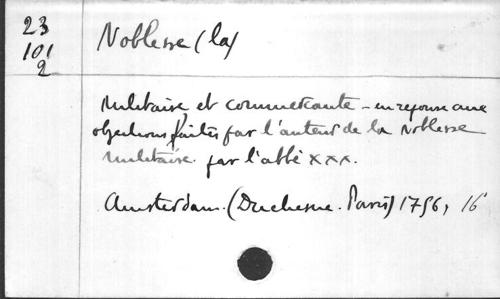 23
101
2
Noblesse (la)
militaire et commercante - en reponse aux
objections faites par l'auteur de la Noblesse
militaire. par l'abbé xxx.
Amsterdam. (Duchesne. Paris) 1756, 16°